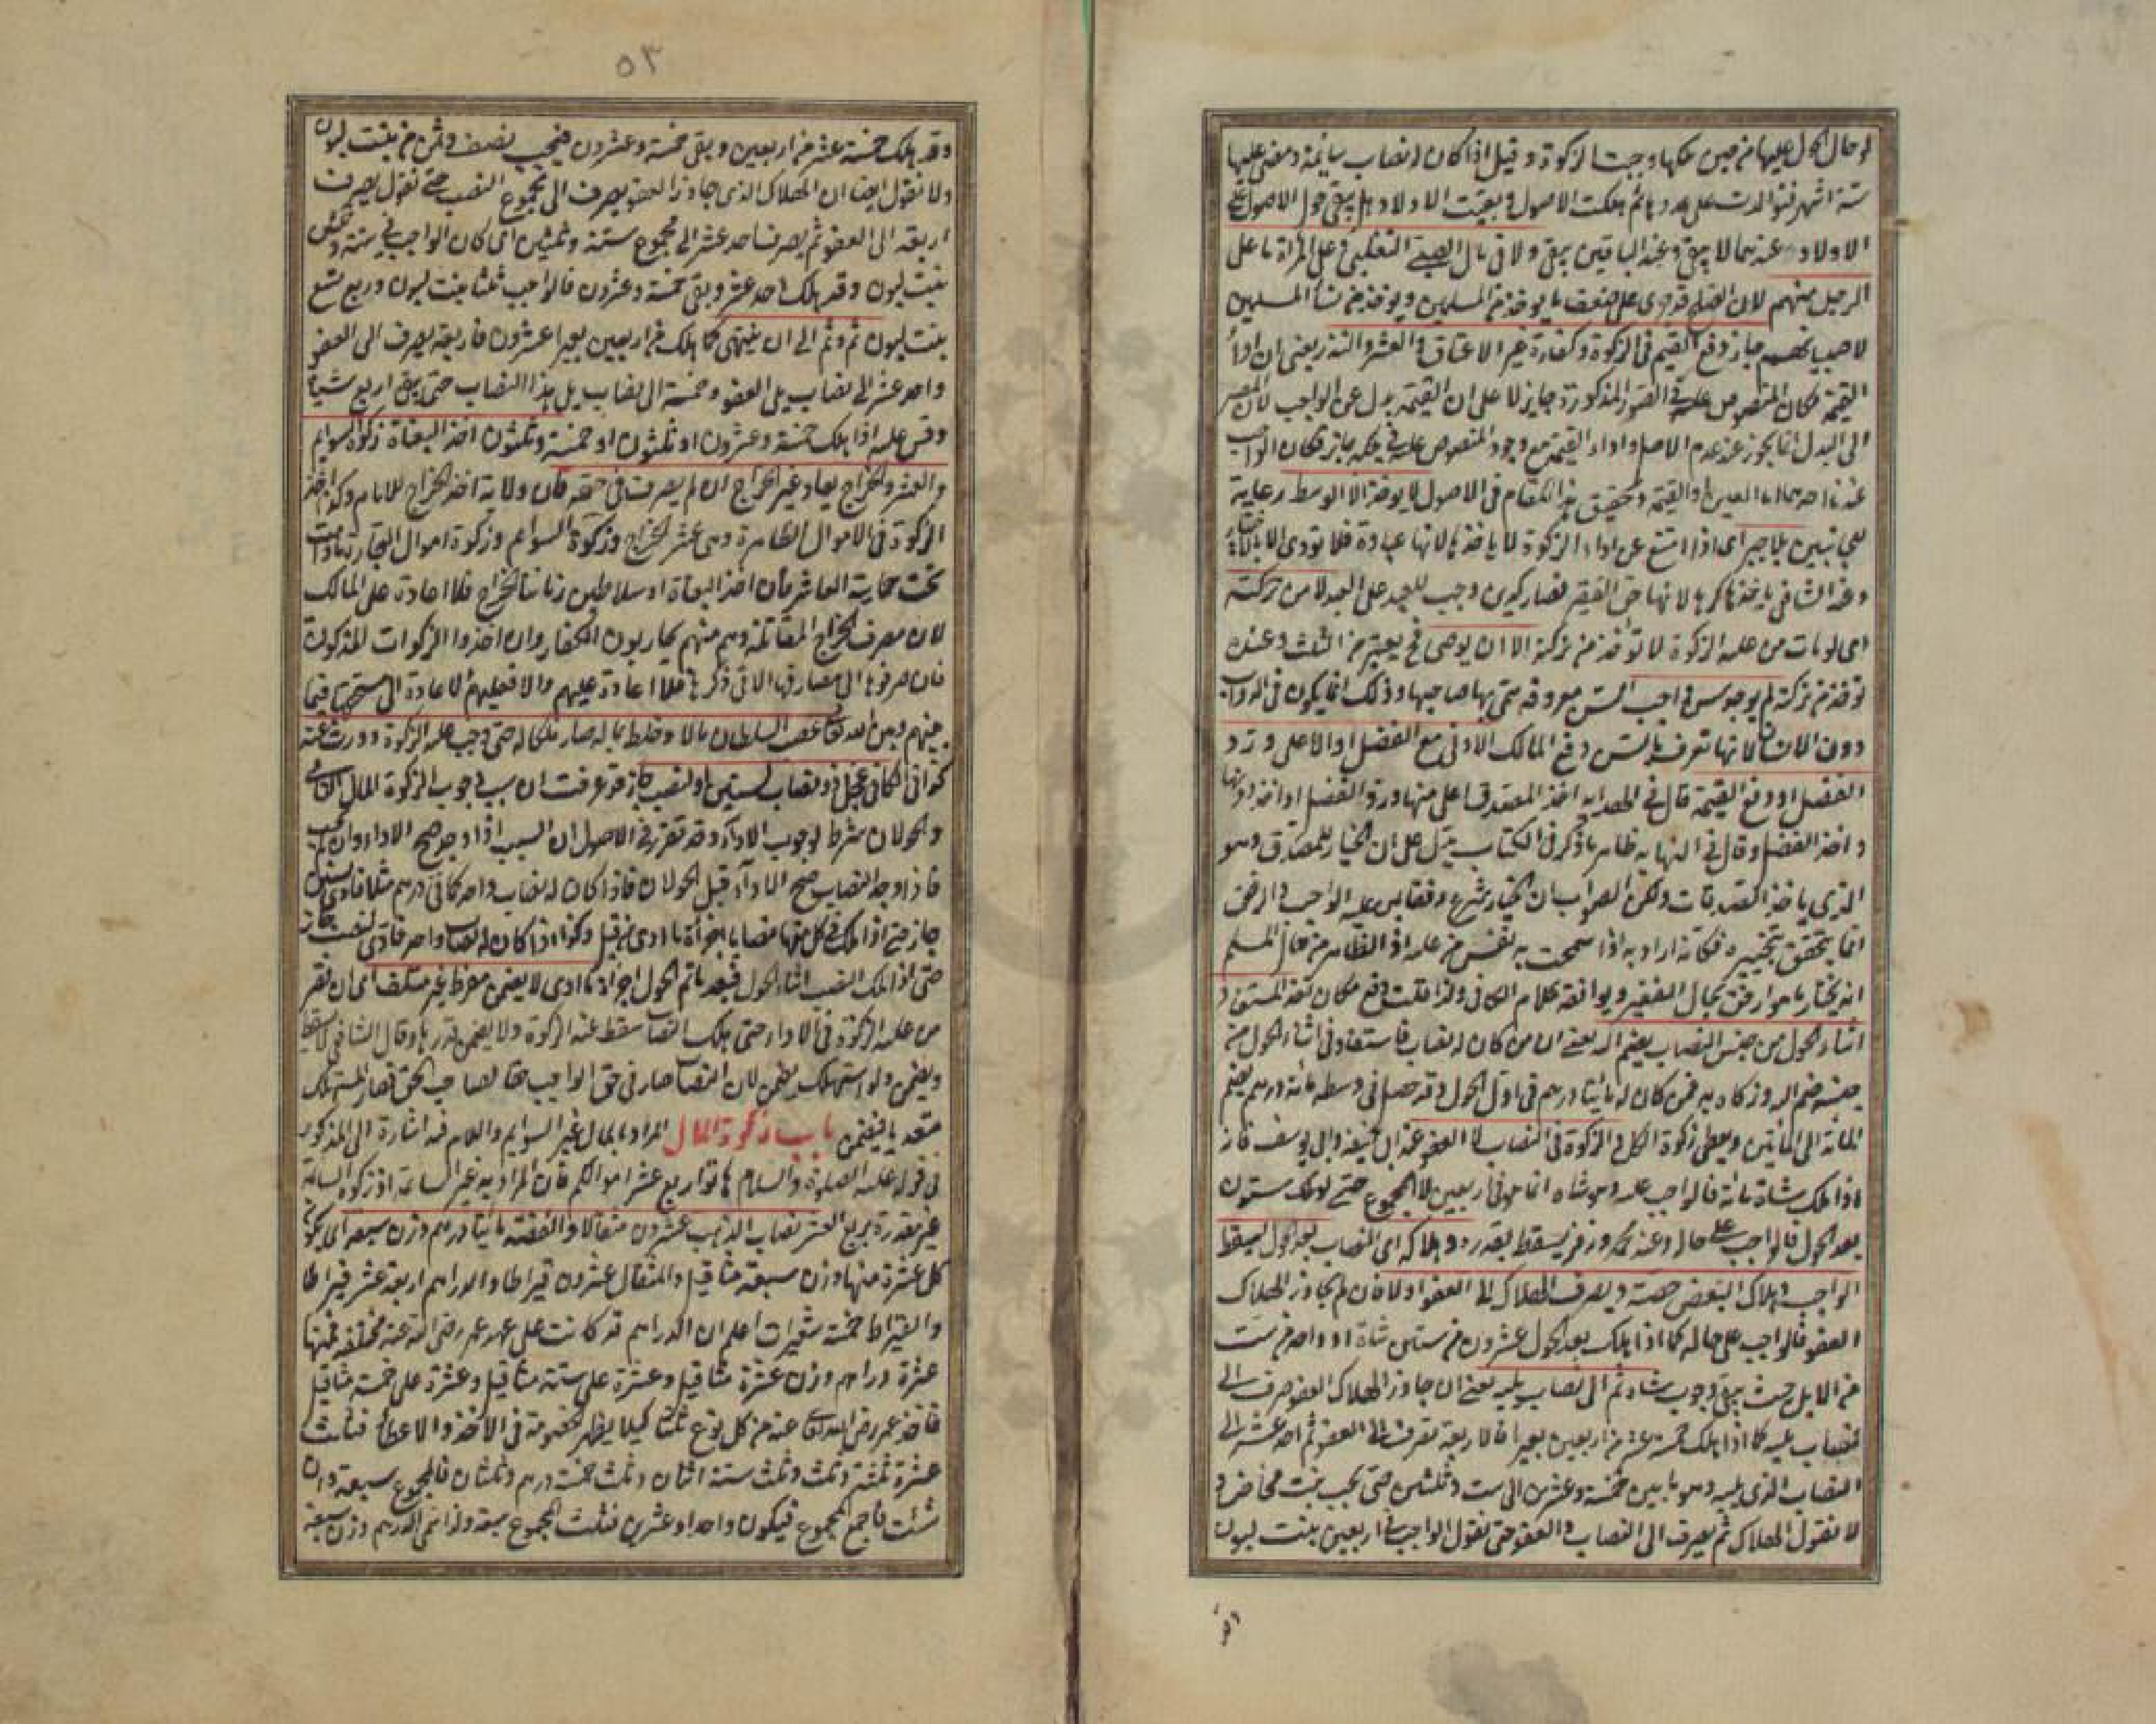 لو حال الحول عليها من حين ملكها وجبت الزكوة وقيل اذا كان له نصاب سائمة ومضى عليها
ستة اشهر فتوالدت على عددها ثم هلكت الاصول وبقيت الاولاد هل يبقى حول الاصول على
الاولاد عندهما لا يبقى وعند الباقين يبقى ولا في مال الصبي التغلبي وعلى المرأة ما على
الرجل منهم لان الصلح قد جرى على ضعف ما يوخذ من المسلمين ويوخذ من نساء المسلمين
لا صبيانهم جاز دفع القيم في الزكوة وكفارة غير الاعتاق والعشر والنذر يعني ان اداء
القيمة مكان المنصوص عليه في الصور المذكورة جايز لا على ان القيمة بدل عن الواجب لان المصير
الى البدل انما يجوز عند عدم الاصل واداء القيمة مع وجود المنصوص عليه في ملكه جايز فكان الواجب
عندنا احدهما اما العين او القيمة وتحقيق هذا المقام في الاصول لا يوخذ الا الوسط رعاية
للجانبين بلا جبر اى اذا امتنع عن اداء الزكوة لا ياخذها لانها عبادة فلا تودى الا بالاختيار
وعند الشافي ياخذها كرها لانها حق الفقير فصار كدين وجب للعبد على العبد لا من تركته
اى لو مات من عليه الزكوة لا توخذ من تركته الا ان يوصى فح يعتبر من الثلث وعنده
توخذ من تركته لم يوجد سن واجب السن معروفة سمى بها صاحبها وذلك انما يكون في الدواب
دون الانسان لانها تعرف بالسن دفع المالك الادنى مع الفضل او الاعلى ورد
الفضل او دفع القيمة قال في الهداية اخذ المصدق اعلى منها ورد الفضل او اخذ ادونها
واخذ الفضل وقال في النهاية ظاهر ما ذكر في الكتاب يدل على ان الخيار للمصدق وهو
الذي ياخذ الصدقات ولكن الصواب ان الخيار شرع رفقا بمن عليه الواجب والرفق
انما يتحقق بتخييره فكانه اراد به اذا سمحت به نفس من عليه اذ الظاهر من حال المسلم
انه يختار ما هو ارفق بحال الفقير ويوافقه كلام الكافي ولذا قلت دفع مكان اخذ المستفاد
اثناء الحول من جنس النصاب يضم اليه يعني ان من كان له نصاب فاستفاد في اثناء الحول من
جنسه ضم اليه وزكاه به فمن كان له مائتا درهم في اول الحول وقد حصل في وسطه مائة درهم يضم
المائة الى المائتين ويعطى زكوة الكل والزكوة في النصاب لا العفو عند ابي حنيفة وابي يوسف فان
اذا ملك شاة مائة فالواجب عليه وهو شاة انما هو في اربعين لا المجموع حتى لو هلك ستون
بعد الحول فالواجب على حاله وعند محمد وزفر يسقط بقدره وهلاكه اى النصاب بعد الحول يسقط
الواجب وهلاك البعض حصته ويصرف الهلاك الى العفو اولا فان لم يجاوز الهلاك
العفو فالواجب على حاله كما اذا هلك بعد الحول عشرون من ستين شاة او واحد من ست
من الابل حيث يبقى وجوب شاة ثم الى نصاب يليه يعني ان جاوز الهلاك العفو صرف الى
نصاب يليه كما اذا هلك خمسة عشر من اربعين بعيرا فالاربعة تصرف الى العفو ثم احد عشر الى
النصاب الذي يليه وهو ما بين خمسة وعشرين الى ست وثلثين حتى يجب بنت مخاض و
لا نقول الهلاك ثم يصرف الى النصاب والعفو حتى نقول الواجب في اربعين بنت لبون
٥٣
وقد هلك خمسة عشر من اربعين وبقى خمسة وعشرون فيجب نصف وثمن من بنت لبون
ولا نقول ايضا ان الهلاك الذي جاوز العفو يصرف الى مجموع النصب حتى نقول يصرف
اربعة الى العفو ثم يصرف احد عشر الى مجموع ستة وثلثين اى كان الواجب في ستة وثلثين
بنت لبون وقد هلك احد عشر وبقى خمسة وعشرون فالواجب ثلثا بنت لبون وربع تسع
بنت لبون ثم وثم الى ان ينتهى كما هلك من اربعين بعيرا عشرون فاربعة يصرف الى العفو
واحد عشر الى نصاب يلى العفو وخمسة الى نصاب يلى هذا النصاب حتى يبقى اربع شياه
وقس عليه اذا هلك خمسة وعشرون او ثلثون او خمسة وثلثون اخذ البغاة زكوة السوائم
والعشر والخراج يعاد غير الخراج ان لم يصرف في حقه فان ولاية اخذ الخراج للامام وكذا اخذ
الزكوة في الاموال الظاهرة وهى عشر الخارج وزكوة السوائم وزكوة اموال التجارة ما دامت
تحت حماية العاشر فان اخذ البغاة او سلاطين زماننا الخراج فلا اعادة على المالك
لان مصرف الخراج المقاتلة وهم منهم يحاربون الكفار وان اخذوا الزكوات المذكورة
فان صرفوها الى مصارفها الاتى ذكرها فلا اعادة عليهم والا فعليهم الاعادة الى مستحقها فيما
بينهم وبين الله تعالى غصب السلطان مالا وخلط بماله صار ملكا له حتى وجب عليه الزكوة وورث عنه
كذا في الكافي عجل ذو نصاب لسنين او لنصب جاز قد عرفت ان سبب وجوب الزكوة المال النامى
والحولان شرط لوجوب الاداء وقد تقرر في الاصول ان السبب اذا وجد صح الاداء وان لم يجب
فاذا وجد النصاب صح الاداء قبل الحولان فاذا كان له نصاب واحد كمائتى درهم مثلا فادى لسنين
جاز حتى اذا ملك في كل منها نصابا اجزأه ما ادى من قبل وكذا اذا كان له نصاب واحد فادى لنصب جاز
حتى اذا ملك النصب اثناء الحول فبعد ما تم الحول اجزأه ما ادى لا يضمن مفرط غير متلف اى ان قصر
من عليه الزكوة في الاداء حتى هلك النصاب سقط عنه الزكوة ولا يضمن قدرها وقال الشافي لا يسقط
ويضمن ولو استهلك يضمن لان النصاب صار في حق الواجب حقا لصاحب الحق فصار المستهلك
متعديا فيضمن باب زكوة المال المراد بالمال غير السوايم واللام فيه اشارة الى المذكور
في قوله عليه الصلوة والسلام هاتوا ربع عشر اموالكم فان المراد به غير السائمة اذ زكوة السائمة
غير مقدرة بربع العشر نصاب الذهب عشرون مثقالا والفضة مائتا درهم وزن سبعة اى يكون
كل عشرة منها وزن سبعة مثاقيل والمثقال عشرون قيراطا والدراهم اربعة عشر قيراطا
والقيراط خمسة شعيرات اعلم ان الدراهم قد كانت على عهد عمر رضى الله عنه مختلفة فمنها
عشرة دراهم وزن عشرة مثاقيل وعشرة على ستة مثاقيل وعشرة على خمسة مثاقيل
فاخذ عمر رضى الله تعالى عنه من كل نوع ثلثا كيلا يظهر الخصومة في الاخذ والاعطاء فثلث
عشرة ثلثة وثلث وثلث ستة اثنان وثلث خمسة درهم وثلثان فالمجموع سبعة وان
شئت فاجمع المجموع فيكون واحدا وعشرين فثلث المجموع سبعة ولذا سمى الدرهم وزن سبعة